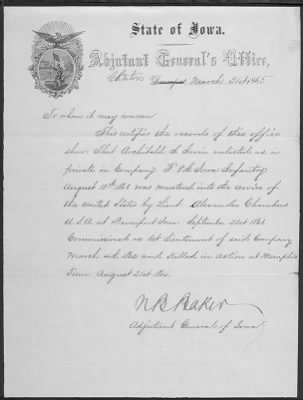 State of Iowa.
Adjutant General's Office,
Clinton Davenport, March 21st 1865
To whom it may concern
This certifies the records of this office
show That Archibald L Irwin enlisted as a
private in Company F 8th Iowa Infantry
August 10th 1861 was mustered into the service of
the United States by Lieut Alexander Chambers
U.S.A at Davenport Iowa September 21st 1861
Commissioned as 1st Lieutenant of said Company
March 4th 1862 and killed in action at Memphis
Tenn August 21st 1864
N B Baker
Adjutant General of Iowa